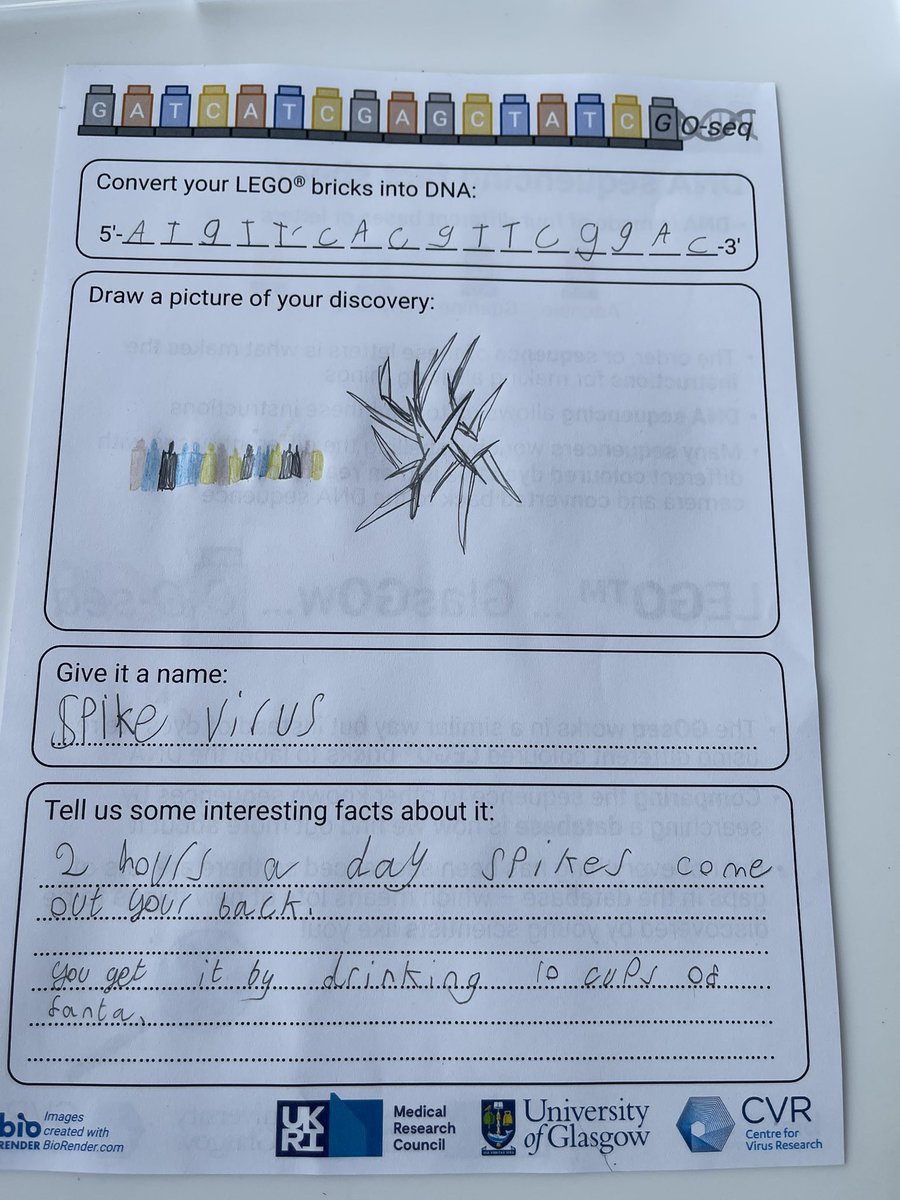 G A T C A T C G A G C T A T C G O-seq
Convert your LEGO® bricks into DNA:
5'-A T g T T C A C g T T C g g A C-3'
Draw a picture of your discovery:
Give it a name:
Spike Virus
Tell us some interesting facts about it:
2 hours a day spikes come
out your back.
You get it by drinking 10 cups of
fanta.
bio Images
created with
RENDER BioRender.com
UK
RI
Medical
Research
Council
University
of Glasgow
CVR
Centre for
Virus Research